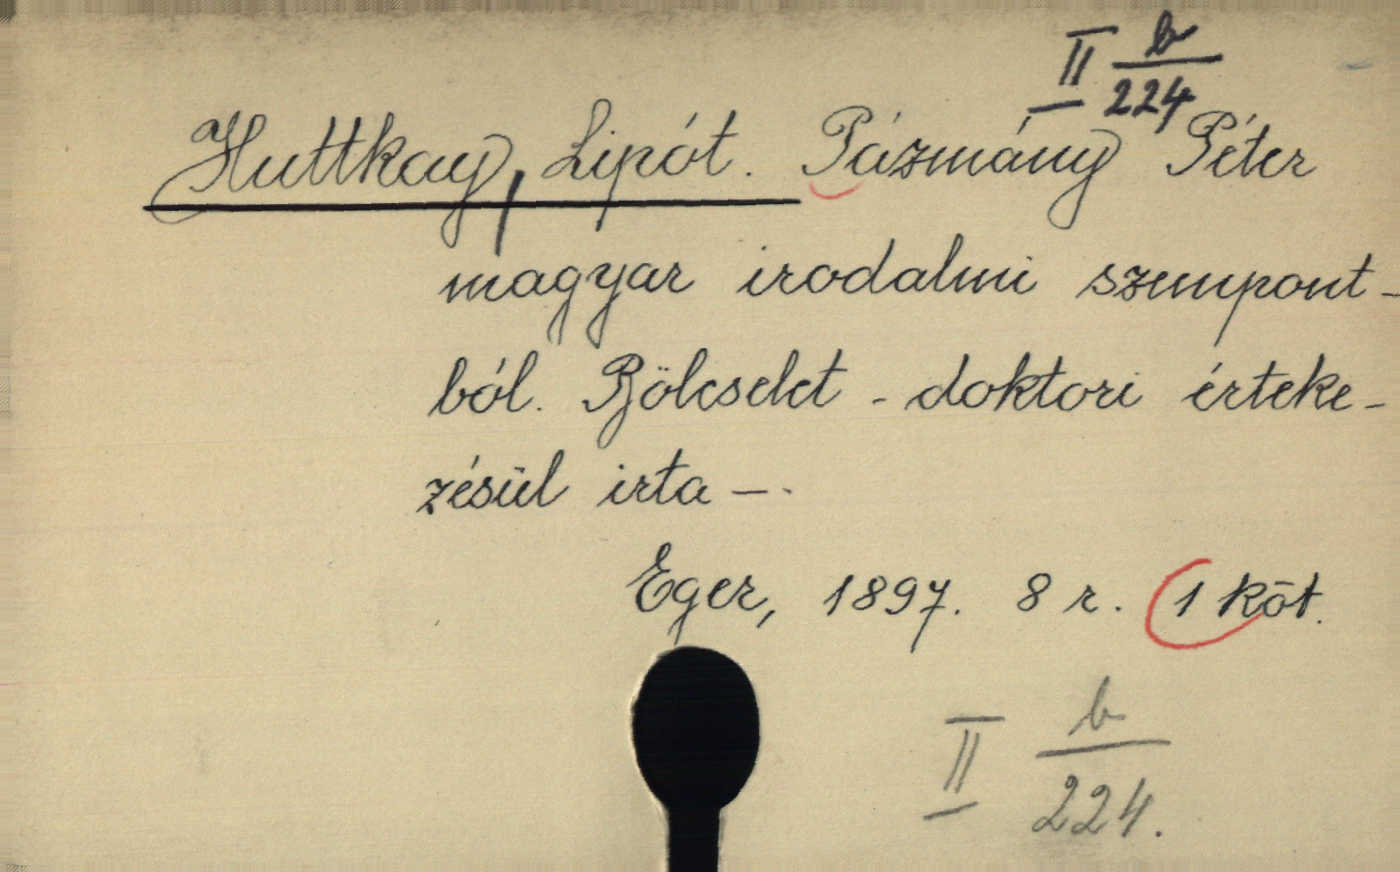 II b/224
Huttkay, Lipót. Pázmány Péter
magyar irodalmi szempont-
ból. Bölcselet - doktori érteke-
zésül irta —.
Eger, 1897. 8 r. 1 köt.
II b/224.